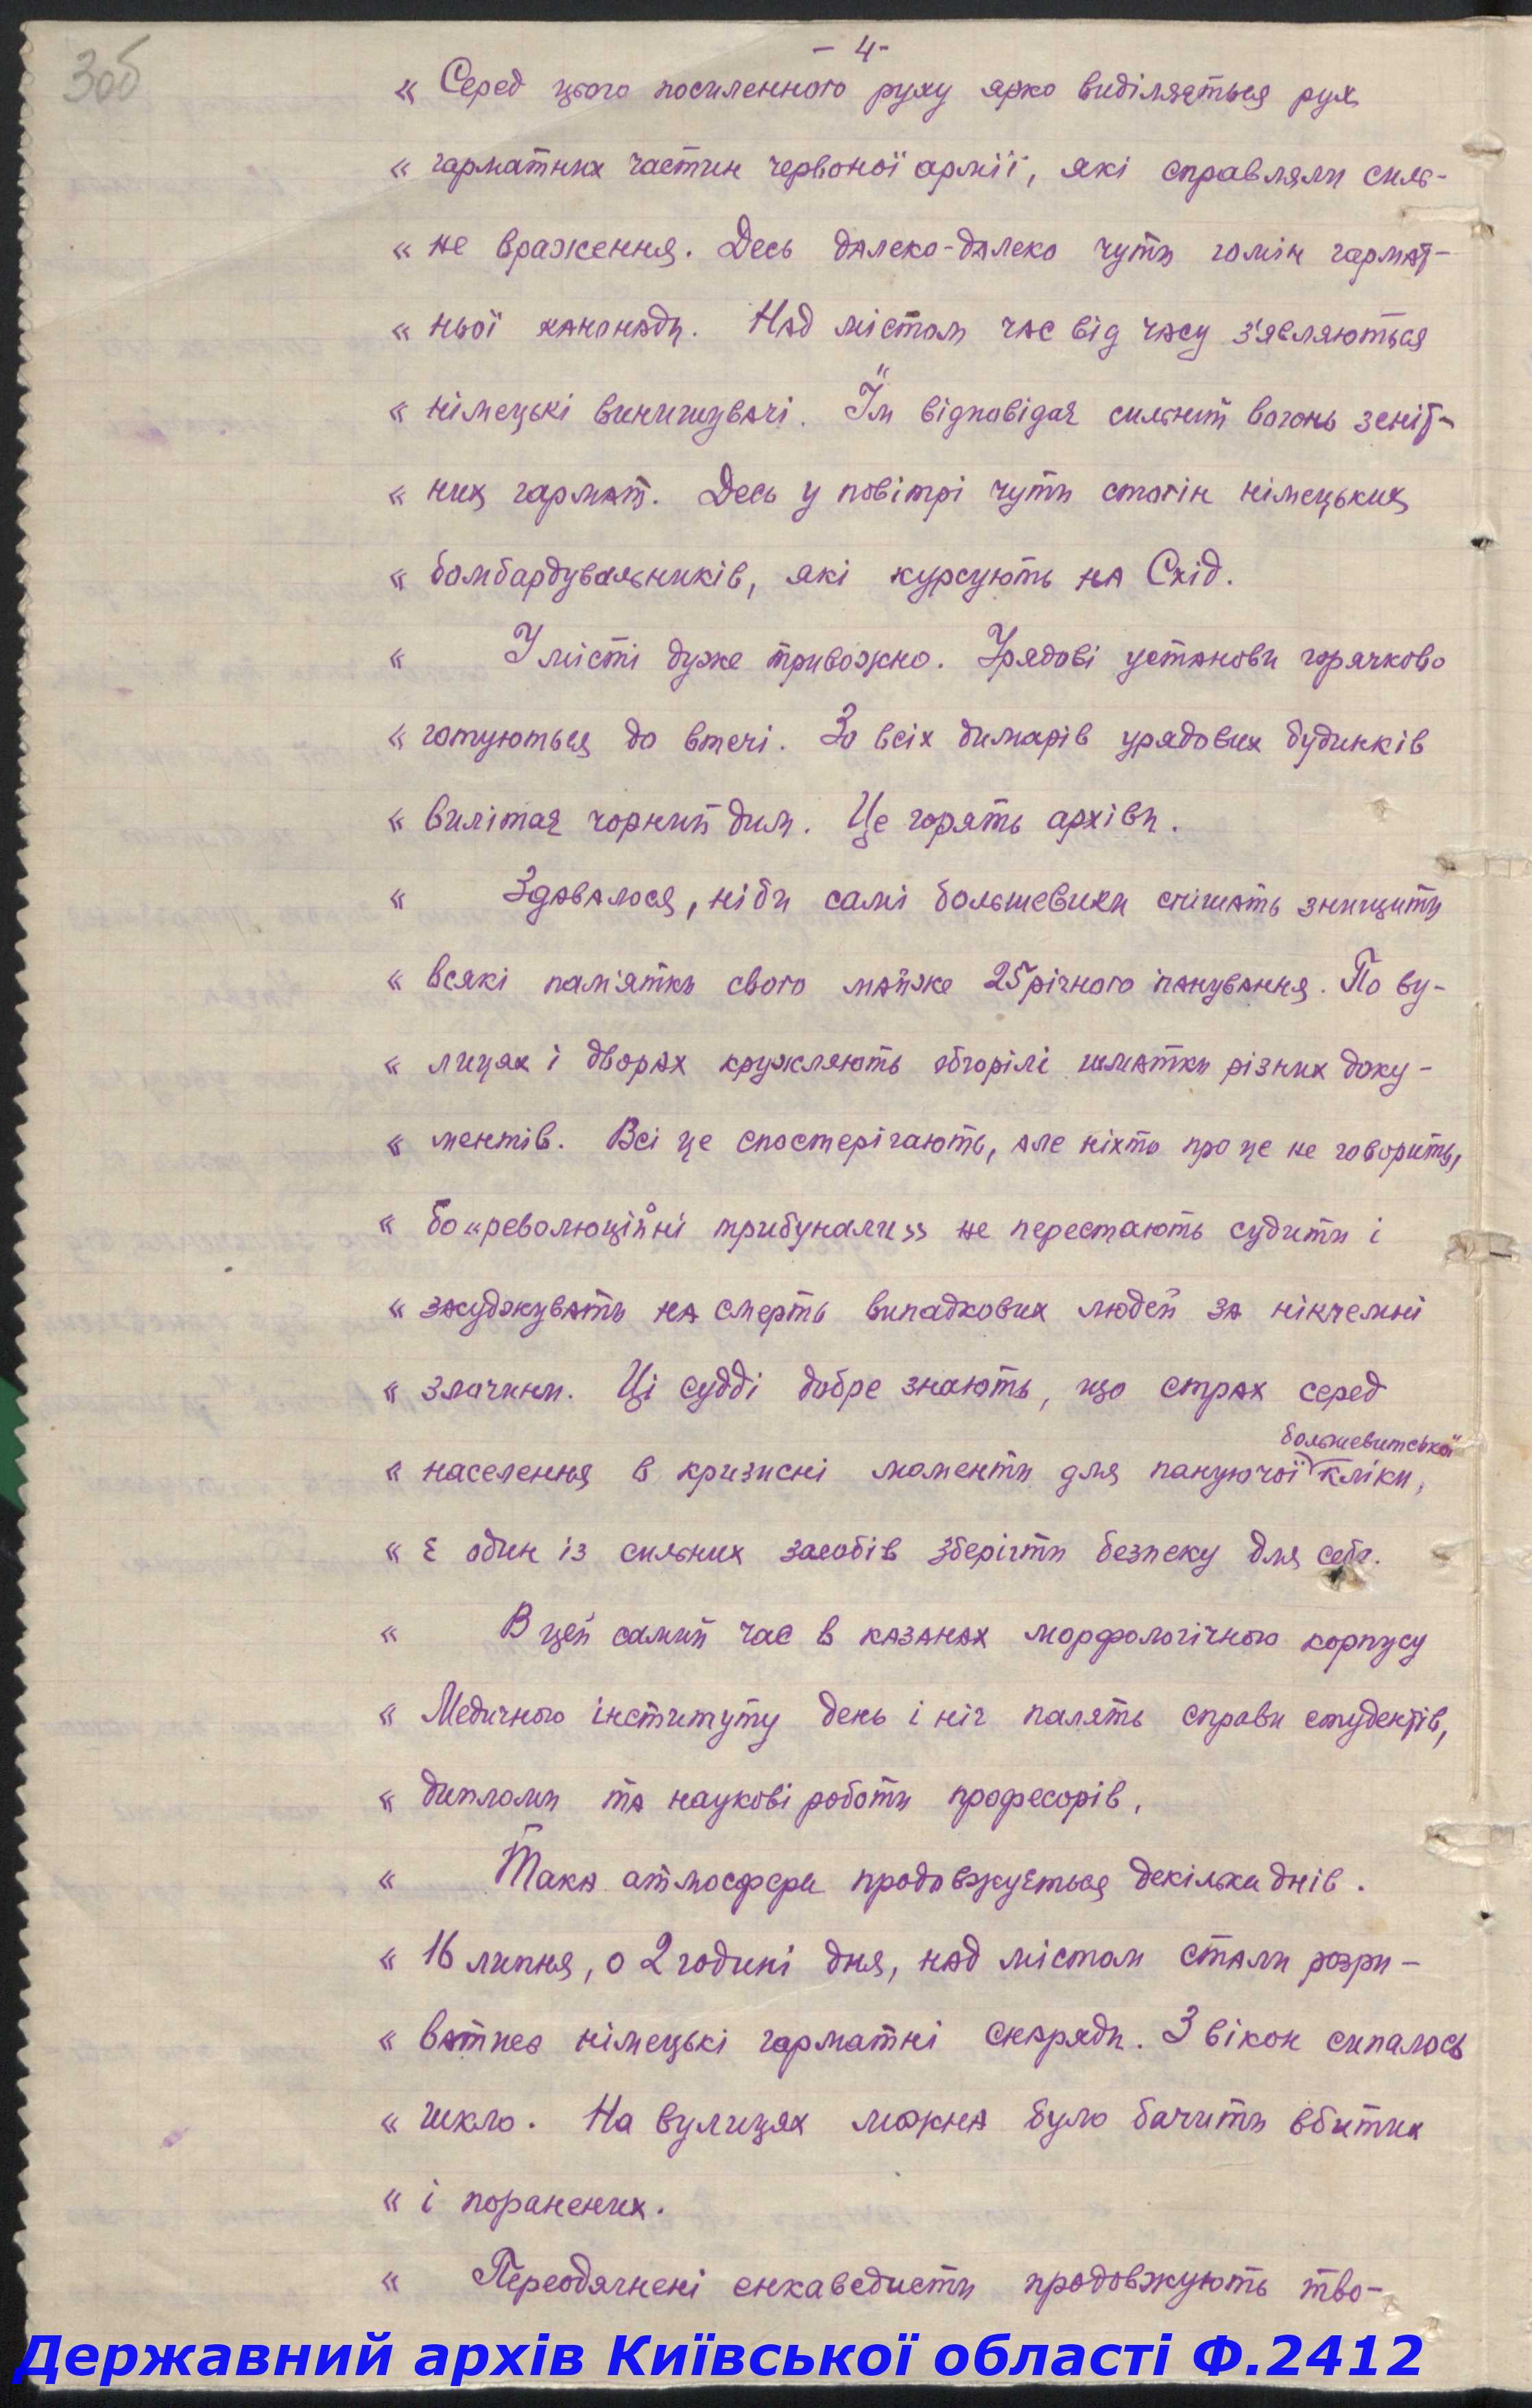 30б
- 4 -
« Серед цього посиленного руху ярко виділяється рух
« гарматних частин червоної армії, які справляли силь-
« не враження. Десь далеко-далеко чути гомін гармат-
« ньої канонади. Над містом час від часу з'являються
« німецькі винищувачі. Їм відповідає сильний вогонь зеніт-
« них гармат. Десь у повітрі чути стогін німецьких
« бомбардувальників, які курсують на Схід.
« У місті дуже тривожно. Урядові установи горячково
« готуються до втечі. Зо всіх димарів урядових будинків
« вилітає чорний дим. Це горять архіви.
« Здавалося, ніби самі большевики спішать знищити
« всякі пам'ятки свого майже 25 річного панування. По ву-
« лицях і дворах кружляють обгорілі шматки різних доку-
« ментів. Всі це спостерігають, але ніхто про це не говорить,
« бо «революційні трибунали» не перестають судити і
« засуджувать на смерть випадкових людей за нікчемні
« злочини. Ці судді добре знають, що страх серед
большевитської
« населення в кризисні моменти для пануючої кліки,
« є один із сильних засобів зберігти безпеку для себе.
« В цей самий час в казанах морфологічного корпусу
« Медичного інституту день і ніч палять справи студентів,
« дипломи та наукові роботи професорів.
« Така атмосфера продовжується декілька днів.
« 16 липня, о 2 годині дня, над містом стали розри-
« ватись німецькі гарматні снаряди. З вікон сипалось
« шкло. На вулицях можна було бачити вбитих
« і поранених.
« Переодягнені енкаведисти продовжують тво-
Державний архів Київської області Ф.2412